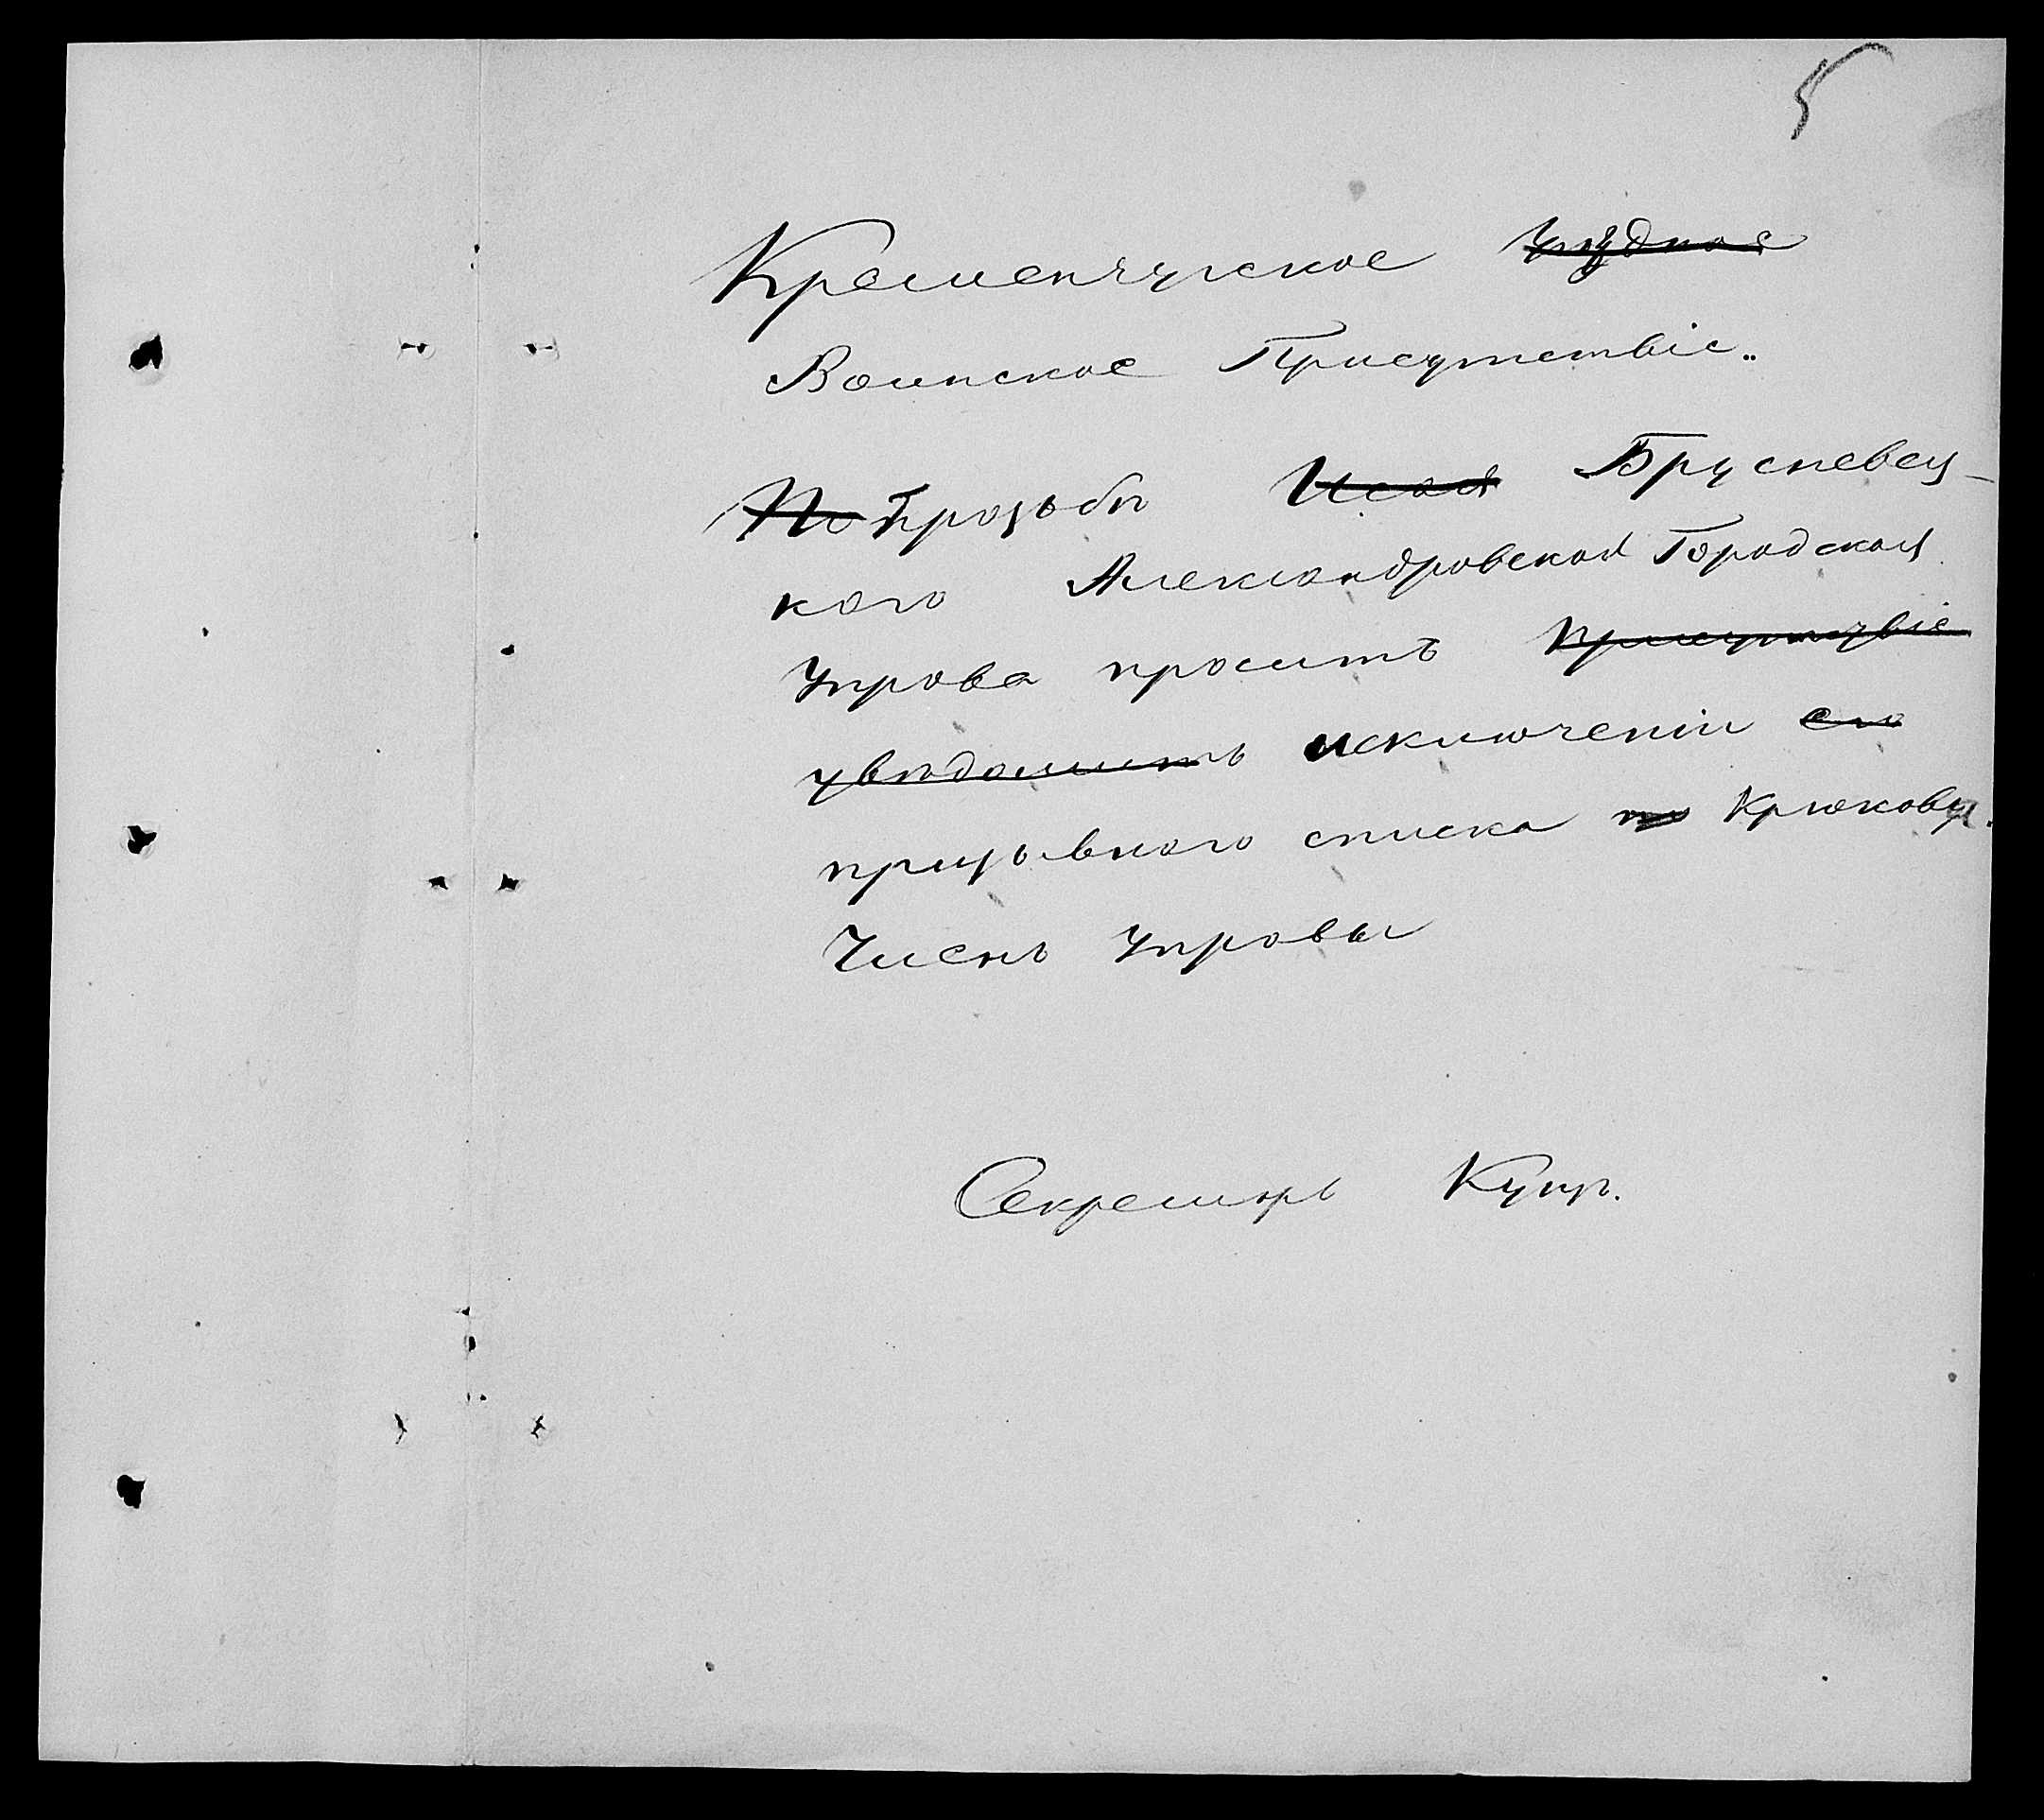 5
Кременчугское уѣздное
Воинское Присутствіе..
По Прозьбѣ Исая Брусневец-
кого Александровская Городская
Управа проситъ присутствіе
увѣдомить исключеніи его
призывного списка по Крюкову.
Членъ Управы
Секретарь